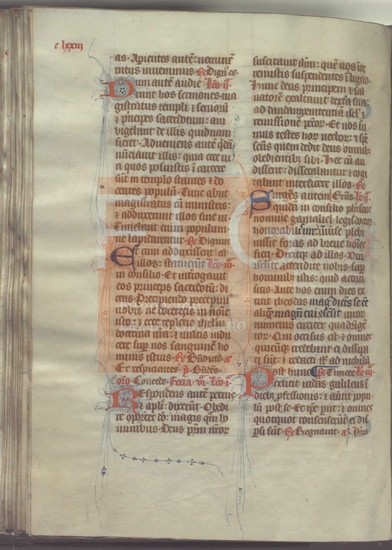 c lxxiii
as. Apientes autē venirunt
intus invenimus
um autē audie
rant hos sermones ma
gistratus templi & seniorū
& pncipes sacerdotum: am
bigebant de illis quidnam
fieret. Adveniens autē qdā
nūciavit illis: quia ecce viri
quos posuistis ī carcere
sunt in templo stantes & do
centes populū. Tunc abiit
magistratus cū ministris:
& adduxerunt illos sine vi.
Timebant enim populum
ne lapidarentur. Dignus
um adduxissent
illos: statuerūt
in consilio. Et interrogavit
eos princeps sacerdotū: di
cens. Precipiendo precepim9
vobis ne doceretis in noīe
isto: & ecce replestis ihrlm
doctrina vra: & vultis indu
cere sup nos sanguinē ho
minis istius.
Et respiciantes
Concede. Feria vi
Respondens autē petrus
& apli: dixerūt. Obedi
re oportet do: magis qm ho
minibus. Deus prm nrorum
suscitavit ihm: quē vos in
teremistis suspendentes ī ligno.
Hunc deus principem & sal
vatorē exaltavit dextera sua
ad dandam penitentiā isrl &
remissionē pctor. Et nos su
mus testes hor verbor: & sps
scūs quem dedit deus omnib9
obedientib9 sibi. Hec cū au
dissent: dissecabantur & cogi
tabant interficere illos.
Surgēs autem
quidā in consilio phariseus
nomine gamaliel legis doctor
honorabilis universe plebi
iussit foras ad breve hoīes
fieri: Dixitqz ad illos. Viri
israelite attendite vobis sup
hominib9 istis: quid acturi
sitis. Ante hos enim dies ex
titit theodas dicens se eē
aliquē cui consensit nume
rus virorum circiter quadrige
tor. Qui occisus est: & omnes
quicūqz credebant ei dissipa
ti sūt: & redacti ad nichilū.
ost hunc
extitit iudas galileus ī
dieb9 professionis: & avertit popu
lū post se. Et ipse periit: & omnes
quotquot consenserūt ei: dis
psi sūt. Regnavit